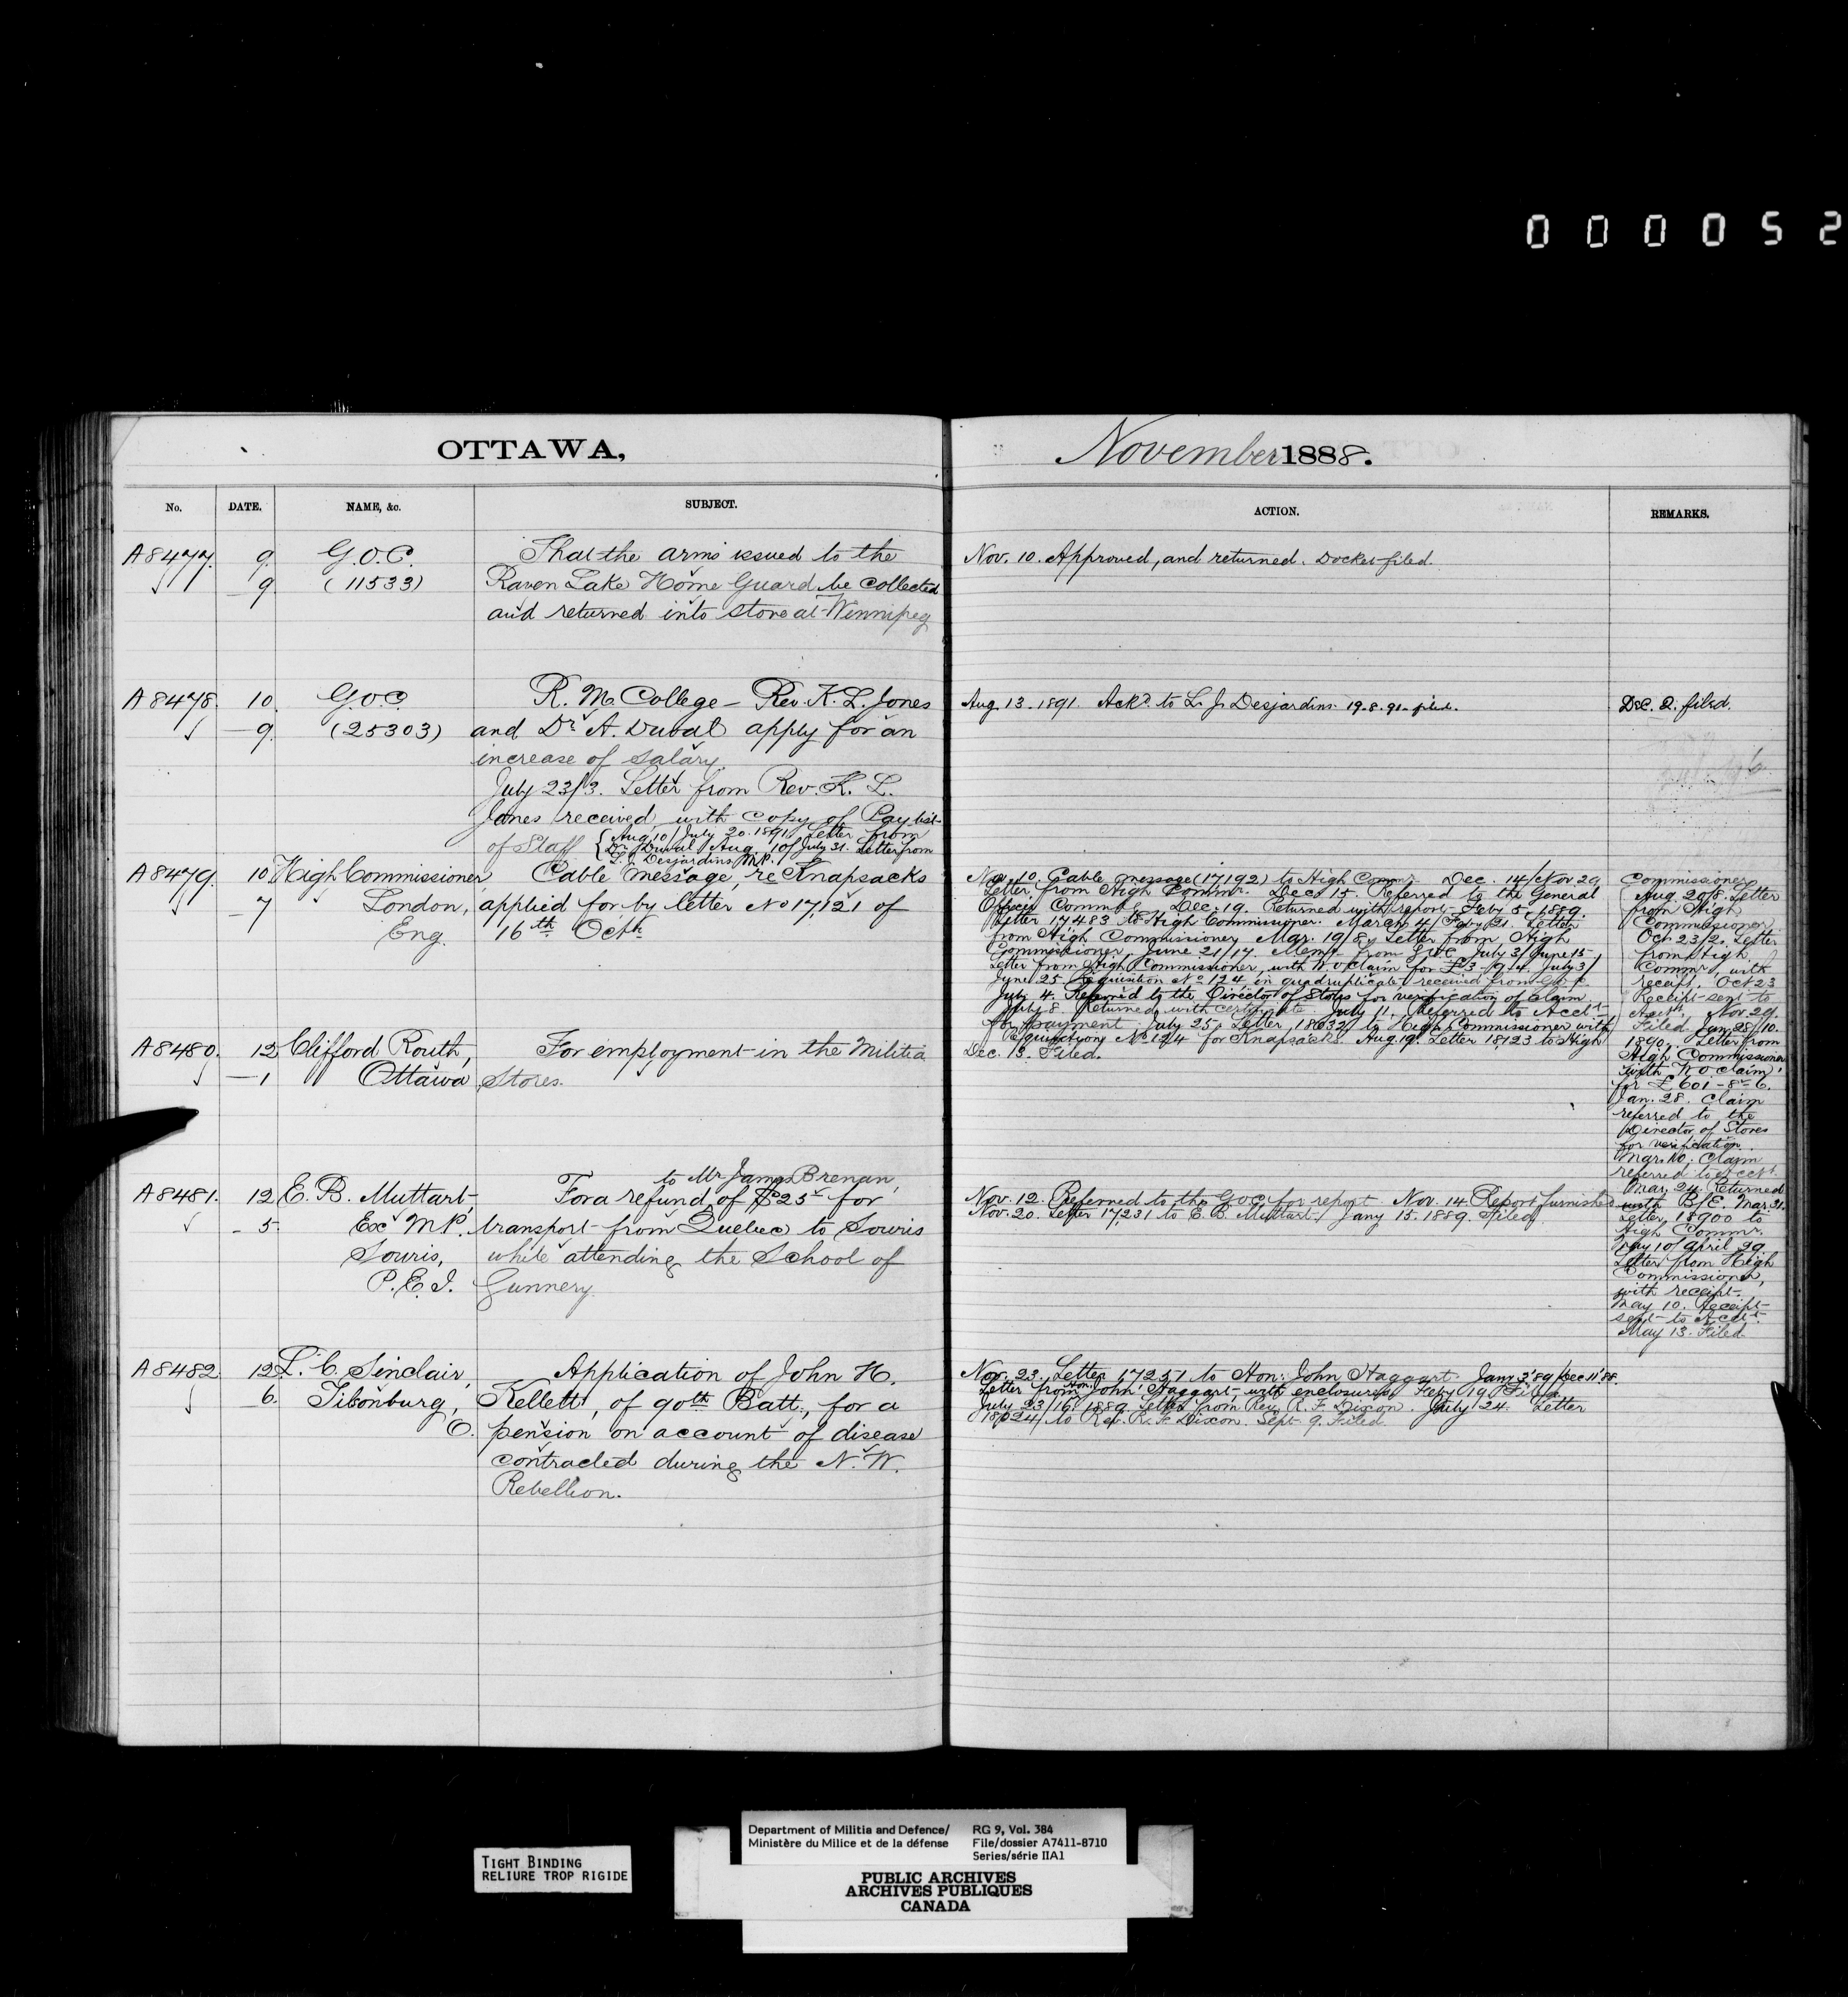 0 0 0 0 5 2
OTTAWA,
No. DATE. NAME, &c. SUBJECT.
A 8477. 9. G.O.C. That the arms issued to the
9 (11533) Raven Lake Home Guard be collected
and returned into store at Winnipeg
A 8478. 10. G.O.C. R. M. College – Rev. K. L. Jones
9. (25303) and Dr A. Duval apply for an
increase of salary.
July 23/3. Letter from Rev. K. L.
Jones received with copy of Pay list
of Staff { Aug 10/July 20. 1891. Letter from
Dr Duval Aug. 10/July 31. Letter from
L. J. Desjardins M.P.
A 8479. 10 High Commissioner, Cable message, re Knapsacks
7 London, applied for by letter No 17,121 of
Eng. 16th Octr.
A 8480. 12 Clifford Routh, For employment in the Militia
1 Ottawa Stores.
A 8481. 12 E. B. Muttart, to Mr James Brenan,
For a refund of $25 for
5. Ex M.P. transport from Quebec to Souris
Souris, while attending the School of
P.E.I. Gunnery.
A 8482 12 L. C. Sinclair, Application of John H.
6. Tilsonburg, Kellett, of 90th Batt., for a
O. pension on account of disease
contracted during the N.W.
Rebellion.
November 1888.
ACTION. REMARKS.
Nov. 10. Approved, and returned. Docket filed.
Aug. 13. 1891. Ackd to L. J. Desjardins. 19.8.91. filed. Dec. 2. filed.
Nov. 10. Cable message (17192) to High Commr. Dec. 14/Nov 29
Letter from High Commr. Dec. 15. Referred to the General
Officer Commdg Dec. 19. Returned with report. Feby 5. 1889.
Letter 17483 to High Commissioner. March 4/Feby 21. Letter
from High Commissioner Mar. 19/8. Letter from High
Commissioner, June 21/17. Memo from G.O.C. July 3/June 15
Letter from High Commissioner, with W.O. claim for £3-9-4. July 3/
June 25 Requisition No 124 in quadruplicate received from G.O.C.
July 4. Referred to the Director of Stores for verification of Claim
July 8. Returned, with certificate. July 11. Referred to Acct
for payment. July 25. Letter, 18032 to High Commissioner with
Requisition No 124 for Knapsacks. Aug. 19. Letter 18,123 to High
Dec. 13. Filed.
Commissioner
Aug. 20/8. Letter
from High
Commissioner
Oct 23/2. Letter
from High
Commr, with
receipt. Oct 23
Receipt sent to
Acct. Nov. 29.
Filed. Jan 28/10.
1890. Letter from
High Commissioner
with W.O. claim
for £601-8-6.
Jan. 28. Claim
referred to the
Director of Stores
for verification
Mar. 10. Claim
referred to Acct
Mar. 24. Returned
with B/E. Mar. 31.
Letter, 18900 to
High Commr.
May 10/April 29
Letter from High
Commissioner,
with receipt.
May 10. Receipt
sent to Acct.
May 13. Filed
Nov. 12. Referred to the G.O.C. for report. Nov. 14 Report furnished
Nov. 20. Letter 17,231 to E. B. Muttart. Jany 15. 1889. Filed
Nov. 23. Letter 17251 to Hon: John Haggart. Jany 3'89/Dec 11'88.
Letter from Hon. John Haggart, with enclosures. Feby 19. Filed.
July 23/16. 1889. Letter from Rev. R. F. Dixon. July 24. Letter
18024 to Rev. R. F. Dixon. Sept. 9. Filed
TIGHT BINDING
RELIURE TROP RIGIDE
Department of Militia and Defence/
Ministère du Milice et de la défense
RG 9, Vol. 384
File/dossier A7411-8710
Series/série IIA1
PUBLIC ARCHIVES
ARCHIVES PUBLIQUES
CANADA